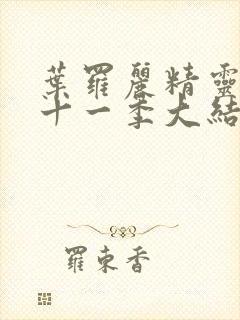 葉羅麗精靈
十一季大結
羅東香